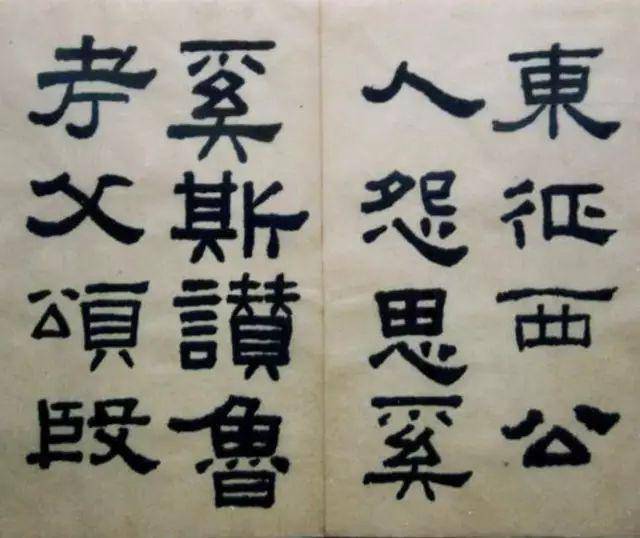 東征西公
人怨思奚
奚斯讚魯
考父頌殷